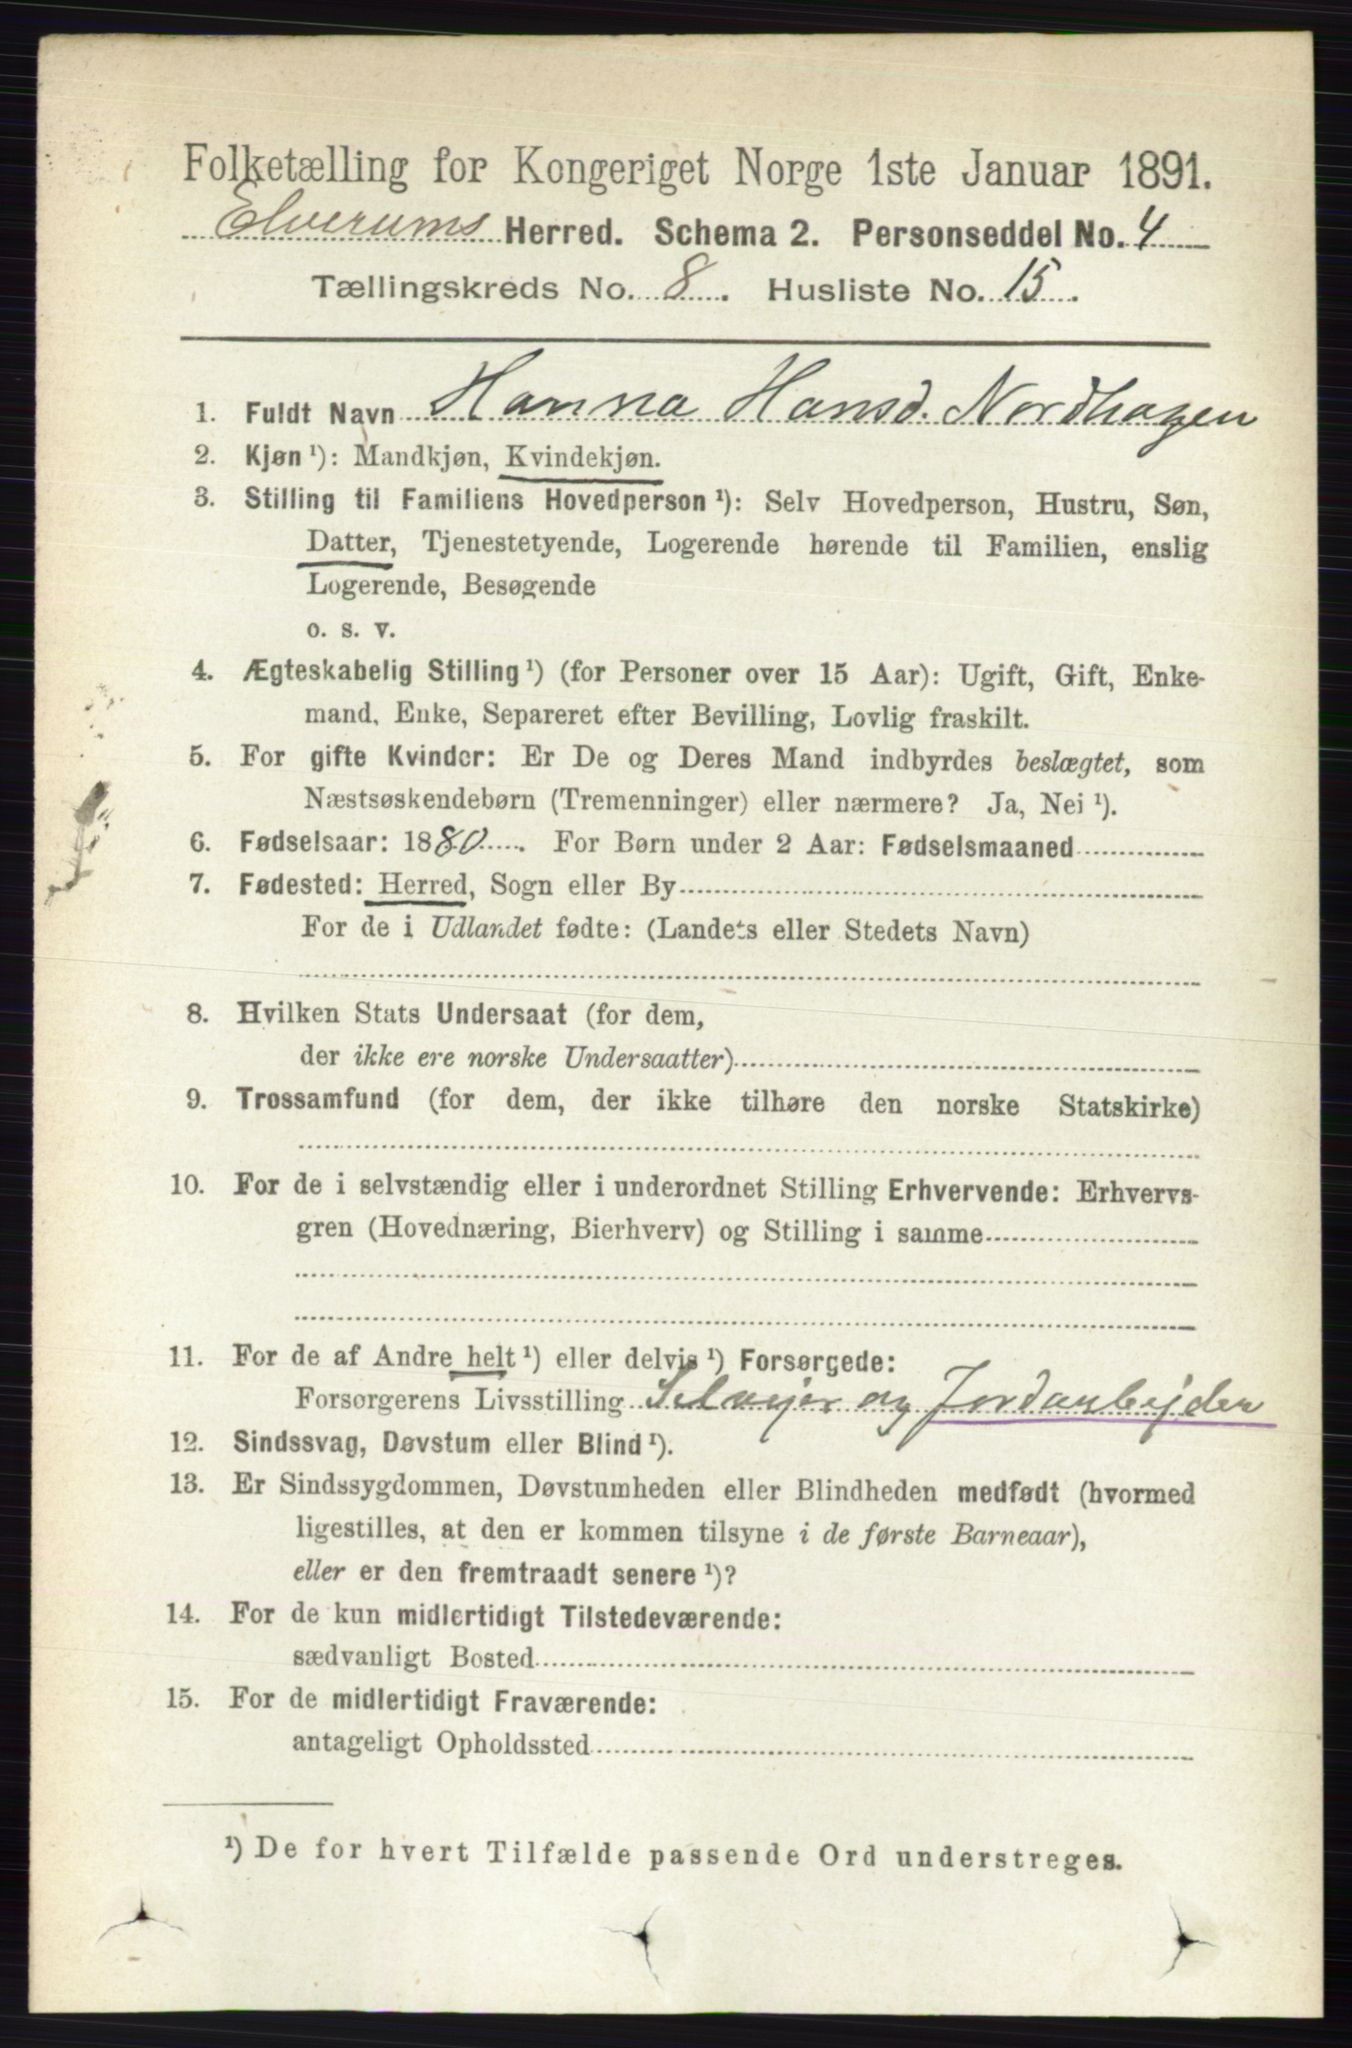 Folketælling for Kongeriget Norge 1ste Januar 1891.
Elverums Herred. Schema 2. Personseddel No. 4
Tællingskreds No. 8. Husliste No. 15.
1. Fuldt Navn Hanna Hansd. Nordhagen
2. Kjøn ¹): Mandkjøn, Kvindekjøn.
3. Stilling til Familiens Hovedperson ¹): Selv Hovedperson, Hustru, Søn,
Datter, Tjenestetyende, Logerende hørende til Familien, enslig
Logerende, Besøgende
o. s. v.
4. Ægteskabelig Stilling ¹) (for Personer over 15 Aar): Ugift, Gift, Enke-
mand, Enke, Separeret efter Bevilling, Lovlig fraskilt.
5. For gifte Kvinder: Er De og Deres Mand indbyrdes beslægtet, som
Næstsøskendebørn (Tremenninger) eller nærmere? Ja, Nei ¹).
6. Fødselsaar: 1880. For Børn under 2 Aar: Fødselsmaaned
7. Fødested: Herred, Sogn eller By
For de i Udlandet fødte: (Landets eller Stedets Navn)
8. Hvilken Stats Undersaat (for dem,
der ikke ere norske Undersaatter)
9. Trossamfund (for dem, der ikke tilhøre den norske Statskirke)
10. For de i selvstændig eller i underordnet Stilling Erhvervende: Erhvervs-
gren (Hovednæring, Bierhverv) og Stilling i samme
11. For de af Andre helt ¹) eller delvis ¹) Forsørgede:
Forsørgerens Livsstilling Selvejer og Jordarbejder
12. Sindssvag, Døvstum eller Blind ¹).
13. Er Sindssygdommen, Døvstumheden eller Blindheden medfødt (hvormed
ligestilles, at den er kommen tilsyne i de første Barneaar),
eller er den fremtraadt senere ¹)?
14. For de kun midlertidigt Tilstedeværende:
sædvanligt Bosted
15. For de midlertidigt Fraværende:
antageligt Opholdssted
¹) De for hvert Tilfælde passende Ord understreges.